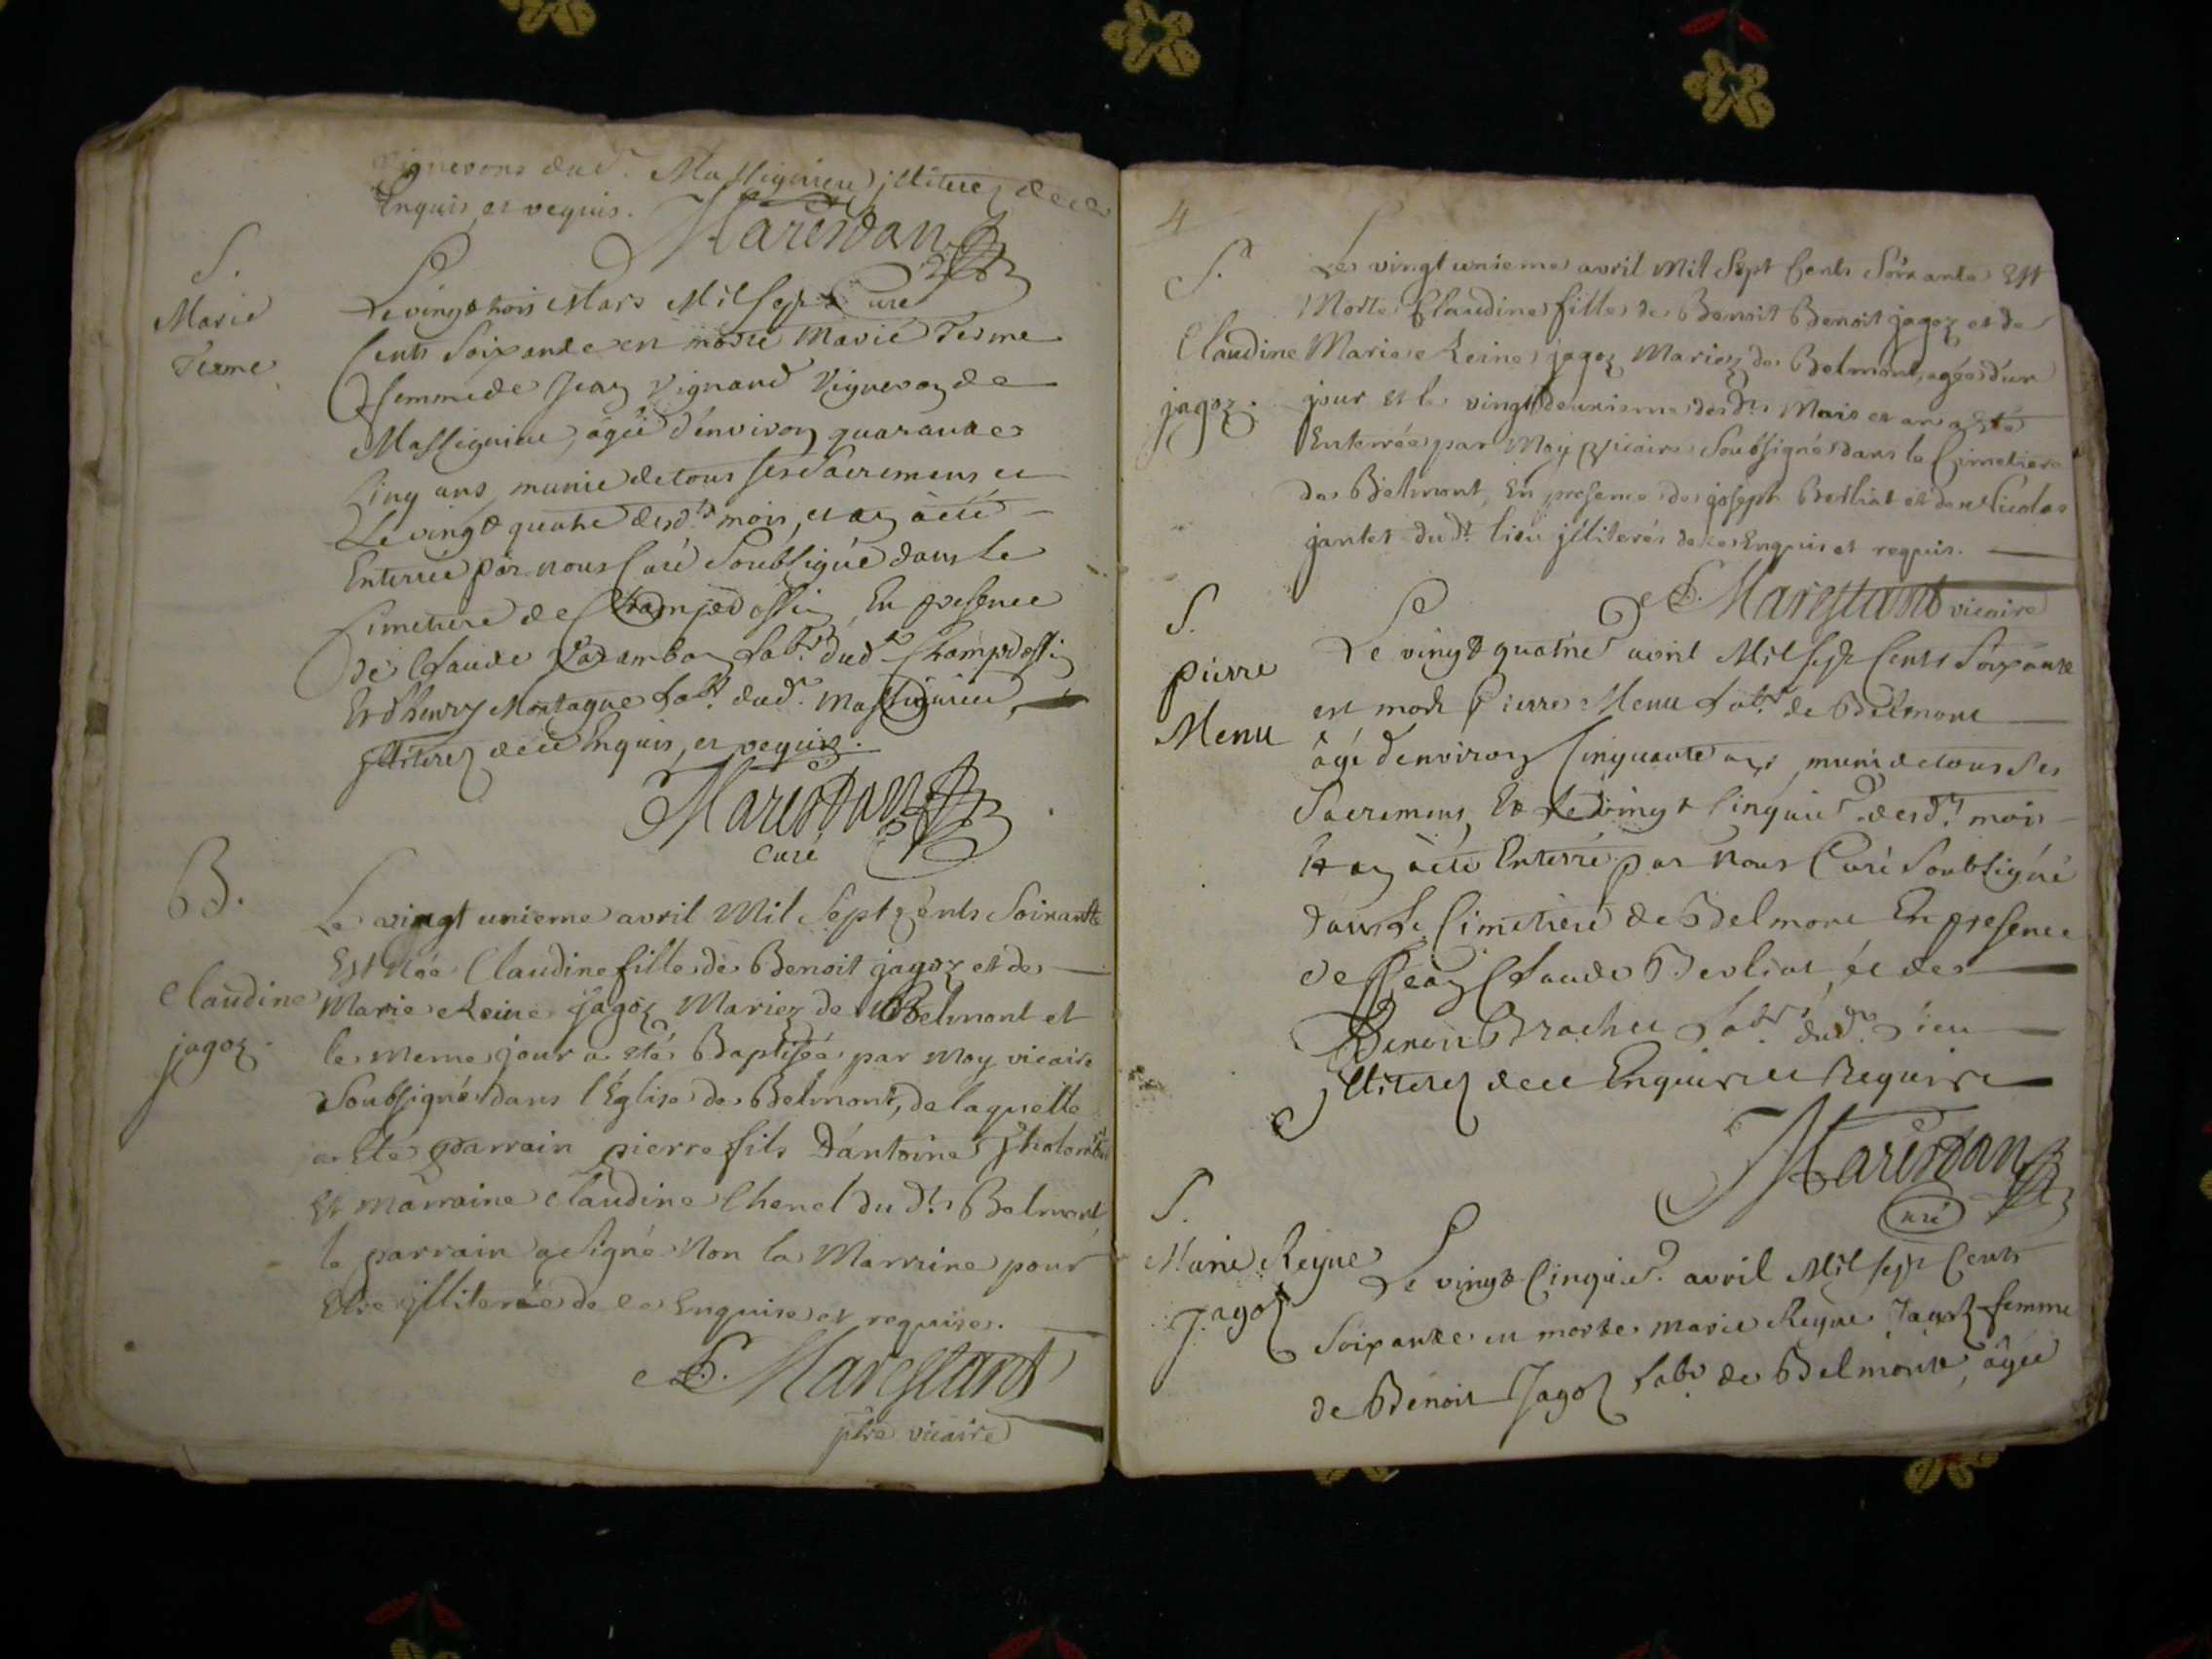 vignerons dud. Massignieu illiterez de ce
Enquis et requis.
Marestan
Curé
S.
Marie
Terme
Le vingt trois Mars Mil sept
Cents soixante est morte Marie Terme
femme de Jean Vignaud Vigneron de
Massignieu, agée d'environ quarante
Cinq ans, munie de tous ses sacremens et
Le vingt quatre desd.ts mois, et an a été
Enterrée par nous Curé soubsigné dans le
Cimetiere de Champdossin, En presence
de Claude labr. dud. Champdossin
Et d'henry Montagne labr. dud. Massignieu
illiterez de ce Enquis, et requis.
Marestan
Curé
B.
Claudine
jagoz.
Le vingt unieme avril Mil Sept Cents Soixante
Est Née Claudine fille de Benoit jagoz et de
Marie Reine Jagoz Mariez de Belmont et
le meme jour a eté Baptisée par Moy vicaire
Soubsigné dans l'Eglise de Belmont, de laquelle
a Eté parrain pierre fils D'antoine
Et marraine Claudine Chenel du d.t Belmont
le parrain a signé Non la Marraine pour
Etre illiterée de ce Enquise et requise.
Marestant
ptre vicaire
4
S.
Claudine
jagoz.
Le vingt unieme avril Mil Sept Cents Soixante Est
Morte Claudine fille de Benoit Benoit jagoz et de
Marie Reine jagoz Mariez de Belmont, agée d'un
jour et le vingt deuxieme des d.ts Mois et an a Eté
Enterrée par Moy vicaire Soubsigné dans le Cimetiere
de Belmont, En presence de joseph Berliat et de Nicolas
jantet du d.t lieu jlliterés de ce Enquis et requis.
Marestant vicaire
S.
pierre
Menu
Le vingt quatrie avril Mil sept Cents Soixante
est mort Pierre Menu labr. de Belmont
âgé d'environ Cinquante ans, muni de tous ses
Sacremens, Et le vingt cinquie. desd.ts mois
Et an a été Enterré par Nous Curé Soubsigné
dans le Cimetiere de Belmont En presence
de Jean Claude Berliat, et de
Benoit Brachet labrs. dud. Lieu
illiterez de ce Enquis et Requis
Marestan
Curé
S.
Marie Reyne
Jagoz
Le vingt Cinquie. avril Mil sept Cents
Soixante est morte Marie Reyne Jagoz femme
de Benoit Jagoz labr. de Belmont, âgée